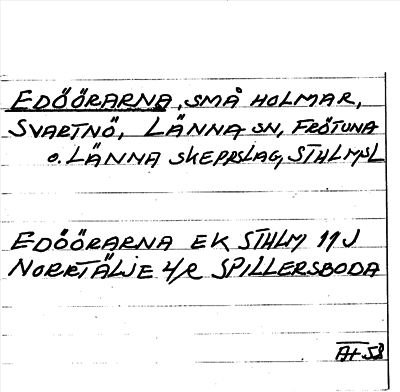 EDÖÖRARNA, SMÅ HOLMAR,
SVARTNÖ, LÄNNA SN, FRÖTUNA
O. LÄNNA SKEPPSLAG, STHLMSL
EDÖÖRARNA EK STHLM 11J
NORRTÄLJE 4/R SPILLERSBODA